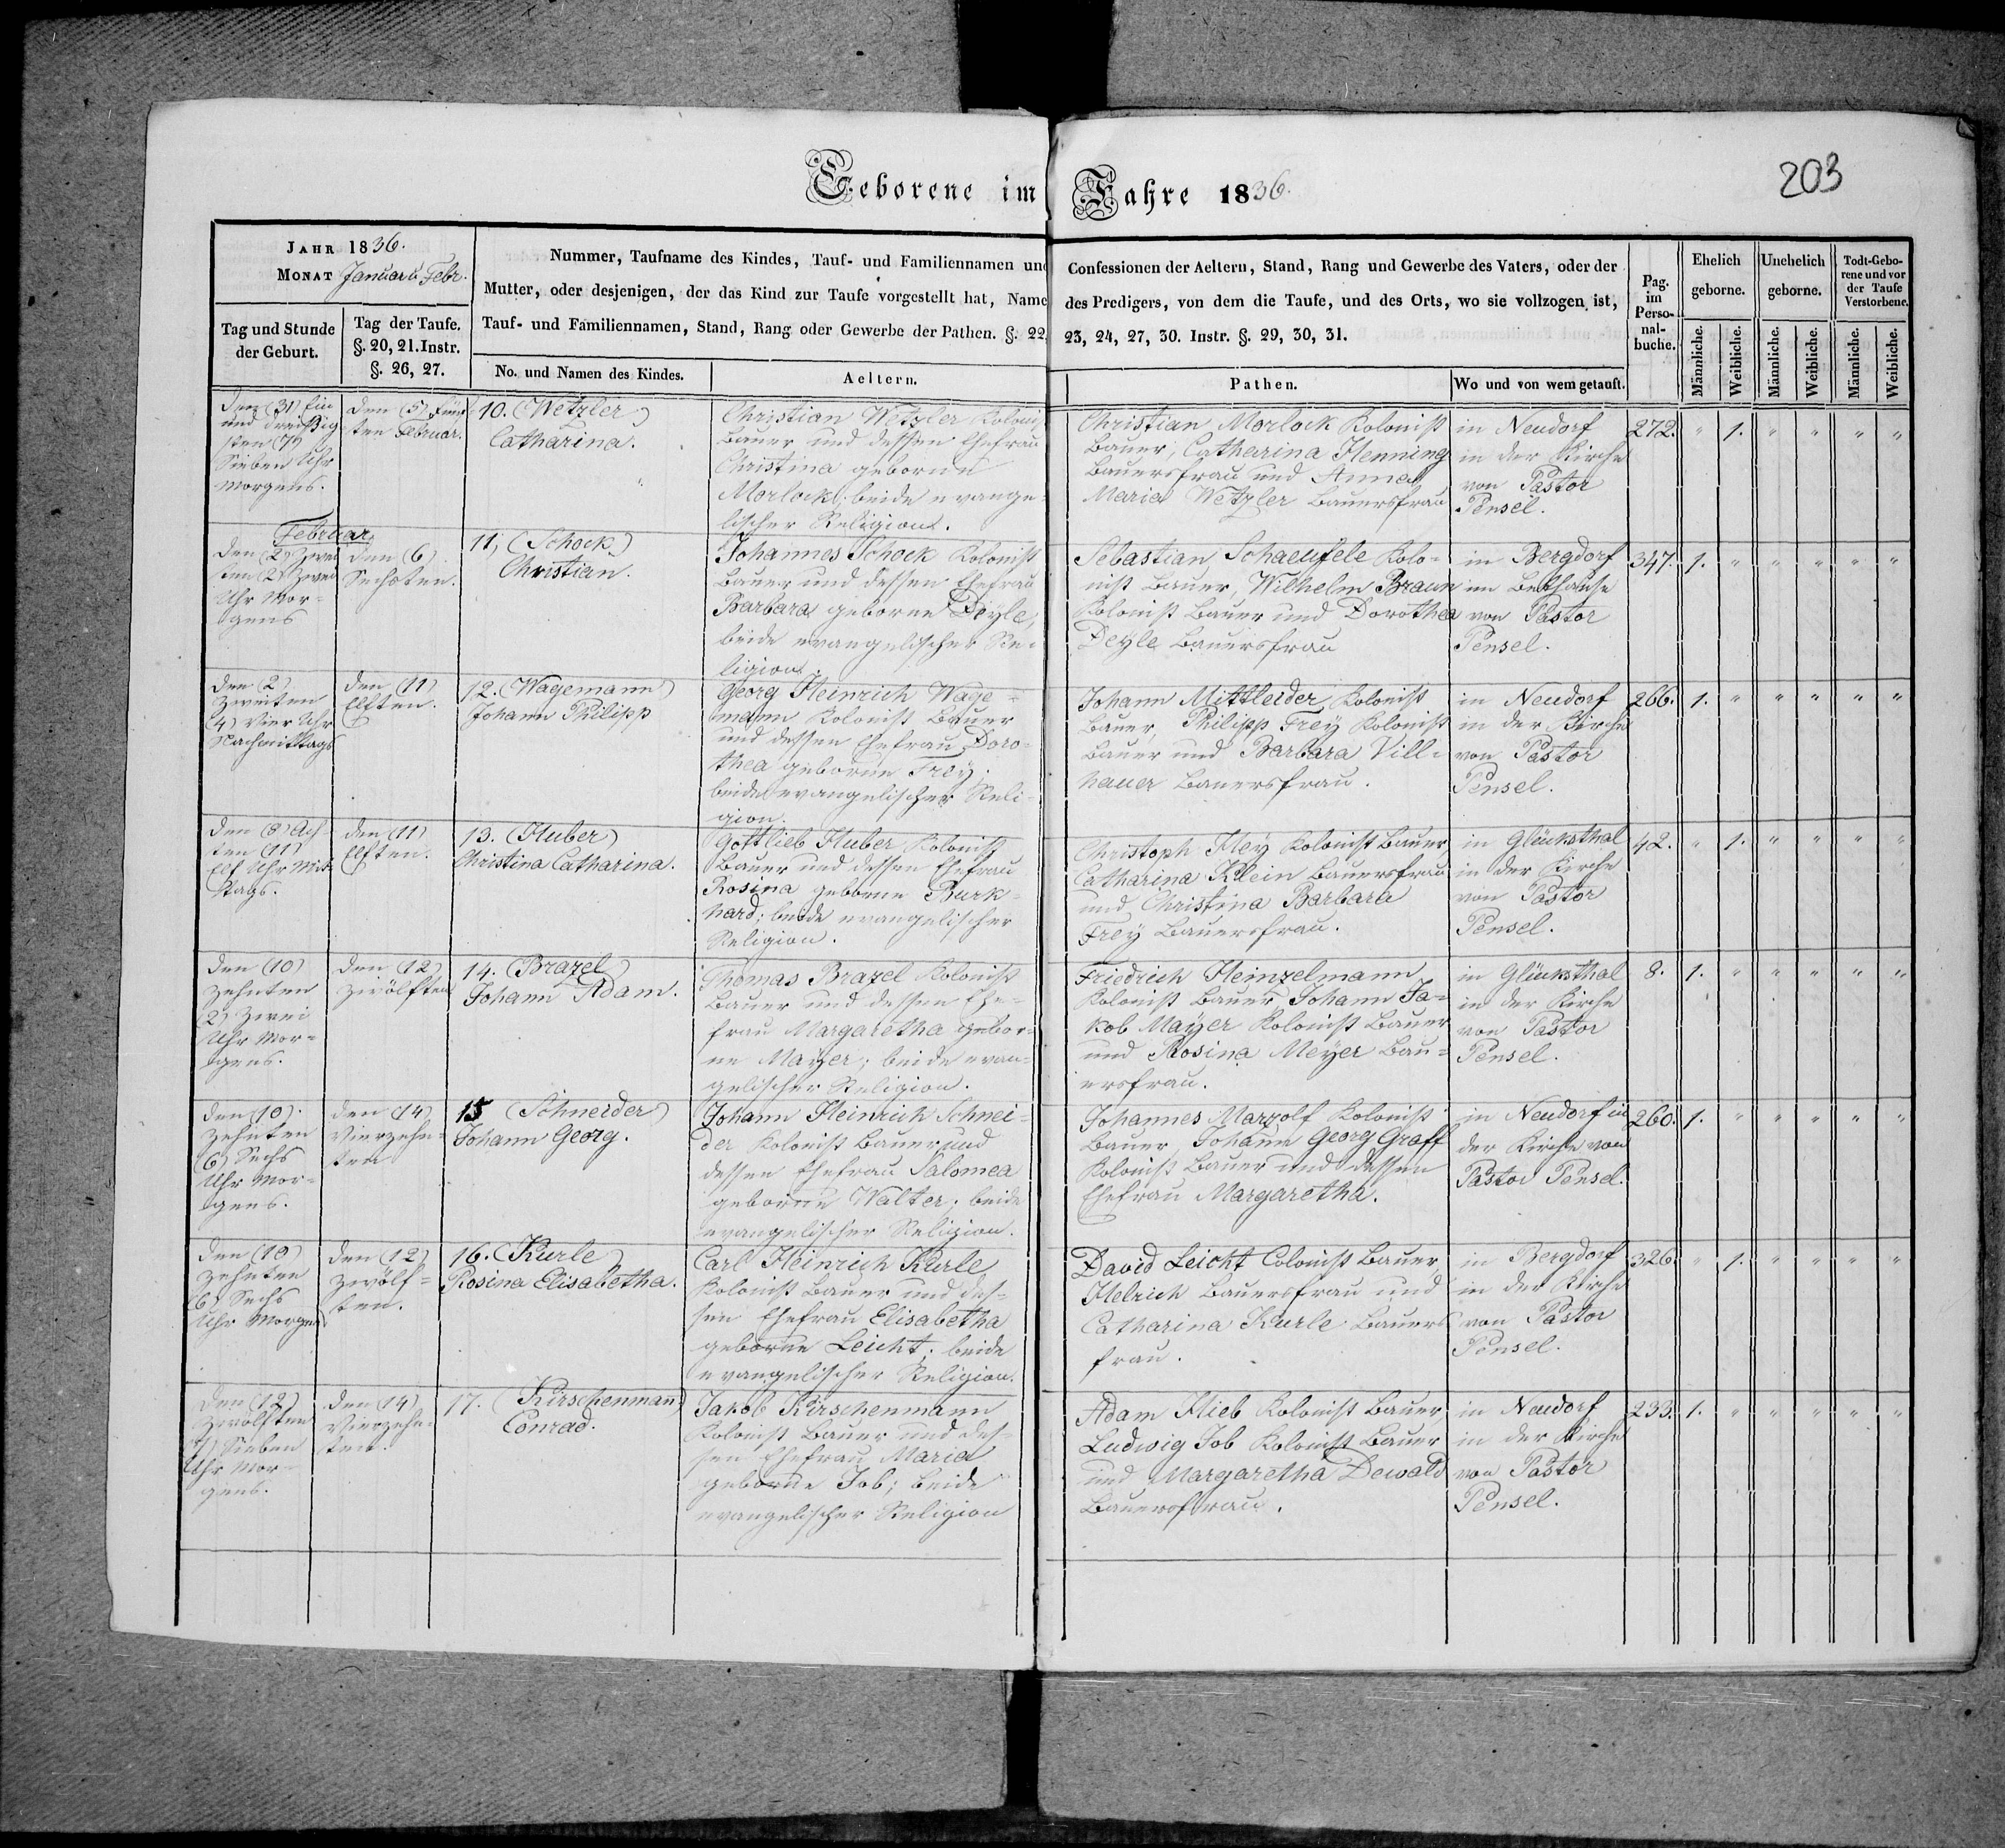 Geborene im Jahre 1836.
203
JAHR 1836.
MONAT Januar u. Febr.
Tag und Stunde
der Geburt.
Tag der Taufe.
§. 20, 21. Instr.
§. 26, 27.
Nummer, Taufname des Kindes, Tauf- und Familiennamen und
Mutter, oder desjenigen, der das Kind zur Taufe vorgestellt hat, Name
Tauf- und Familiennamen, Stand, Rang oder Gewerbe der Pathen. §. 22,
No. und Namen des Kindes.
Aeltern.
Confessionen der Aeltern, Stand, Rang und Gewerbe des Vaters, oder der
des Predigers, von dem die Taufe, und des Orts, wo sie vollzogen ist,
23, 24, 27, 30. Instr. §. 29, 30, 31.
Pathen.
Wo und von wem getauft.
Pag.
im
Perso-
nal-
buche.
Ehelich
geborne.
Unehelich
geborne.
Todt-Gebo-
rene und vor
der Taufe
Verstorbene.
Männliche.
Weibliche.
Männliche.
Weibliche.
Männliche.
Weibliche.
Den (31) Ein
und dreißig
sten (7)
Sieben Uhr
Morgens.
Den (5) Fünf
ten Februar.
10. (Wetzler)
Catharina.
Christian Wetzler Koloni
Bauer und dessen Ehefrau
Christina geborne
Morlock; beide evange-
lischer Religion.
Christian Morlock Kolonist
Bauer, Catharina Henning
Bauersfrau und Anna
Maria Wetzler Bauersfrau
in Neudorf
in der Kirche
von Pastor
Pensel.
272. " 1. " " " "
Februar
Den (2) Zwei
ten (2) Zwei
Uhr Mor-
gens
Den (6)
Sechsten.
11, (Schock)
Christian.
Johannes Schock Kolonist
Bauer und dessen Ehefrau
Barbara geborne Deyle,
beide evangelischer Re-
ligion.
Sebastian Schaeufele Kolo-
nist Bauer, Wilhelm Braun
Kolonist Bauer und Dorothea
Deyle Bauersfrau
in Bergdorf
im Bethause
von Pastor
Pensel.
347. 1. " " " " "
Den (2)
Zweiten
(4) Vier Uhr
Nachmittags
Den (11)
Elften.
12. (Wagemann)
Johann Philipp
Georg Heinrich Wage-
mann Kolonist Bauer
und dessen Ehefrau Doro-
thea geborne Frey;
beide evangelischer Reli-
gion.
Johann Mittleider Kolonist
Bauer, Philipp Frey Kolonist
Bauer und Barbara Vill-
hauer Bauersfrau.
in Neudorf
in der Kirche
von Pastor
Pensel.
266. 1. " " " " "
Den (8) Ach
ten (11)
Elf Uhr Mit
tags.
Den (11)
Elften.
13. (Huber)
Christina Catharina.
Gottlieb Huber Kolonist
Bauer und dessen Ehefrau
Rosina geborne Burk-
hard; beide evangelischer
Religion.
Christoph Hey Kolonist Bauer
Catharina Klein Bauersfrau
und Christina Barbara
Frey Bauersfrau.
in Glücksthal
in der Kirche
von Pastor
Pensel.
42. " 1. " " " "
Den (10)
Zehnten
(2) Zwei
Uhr Mor-
gens.
Den (12)
Zwölften
14. (Brazel)
Johann Adam.
Thomas Brazel Kolonist
Bauer und dessen Ehe-
frau Margaretha gebor-
ne Mayer; beide evan-
gelischer Religion.
Friedrich Heinzelmann
Kolonist Bauer, Johann Ja-
kob Mayer Kolonist Bauer
und Rosina Meyer Bau-
ersfrau.
in Glücksthal
in der Kirche
von Pastor
Pensel.
8. 1. " " " " "
Den (10)
Zehnten
(6) Sechs
Uhr Mor-
gens.
Den (14)
Vierzehn-
ten
15 (Schneider)
Johann Georg.
Johann Heinrich Schnei-
der Kolonist Bauer und
dessen Ehefrau Salomea
geborne Walter; beide
evangelischer Religion.
Johannes Marzolf Kolonist
Bauer, Johann Georg Graff
Kolonist Bauer und dessen
Ehefrau Margaretha.
in Neudorf in
der Kirche von
Pastor Pensel.
260. 1. " " " " "
Den (10)
Zehnten
(6) Sechs
Uhr Morgen
Den (12)
Zwölf-
ten.
16. (Kurle)
Rosina Elisabetha.
Carl Heinrich Kurle
Kolonist Bauer und des-
sen Ehefrau Elisabetha
geborne Leicht; beide
evangelischer Religion.
David Leicht Colonist Bauer
Helrich Bauersfrau und
Catharina Kurle Bauers
frau.
in Bergdorf
in der Kirche
von Pastor
Pensel.
326. " 1. " " " "
Den (12)
Zwölften
(7) Sieben
Uhr Mor-
gens.
Den (14)
Vierzehn-
ten.
17. (Kirschenmann)
Conrad.
Jakob Kirschenmann
Kolonist Bauer und des-
sen Ehefrau Maria
geborne Job; beide
evangelischer Religion
Adam Hieb Kolonist Bauer,
Ludwig Job Kolonist Bauer
und Margaretha Dewald
Bauersfrau.
in Neudorf
in der Kirche
von Pastor
Pensel.
233. 1. " " " " "